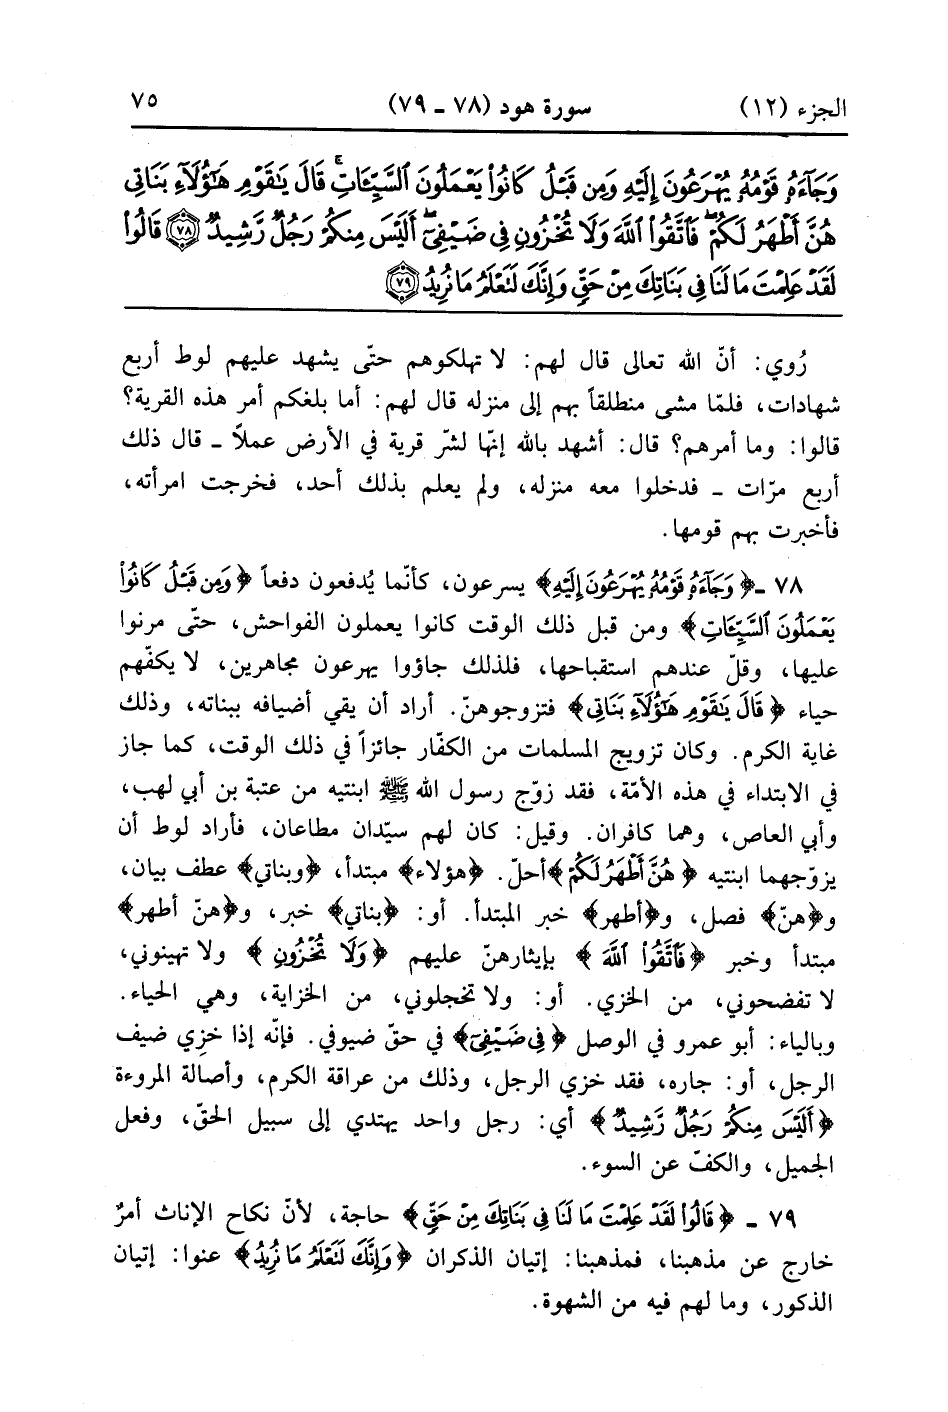 الجزء (١٢) سورة هود (٧٨ ـ ٧٩) ٧٥
وَجَآءَهُۥ قَوْمُهُۥ يُهْرَعُونَ إِلَيْهِ وَمِن قَبْلُ كَانُوا۟ يَعْمَلُونَ ٱلسَّيِّـَٔاتِ ۚ قَالَ يَـٰقَوْمِ هَـٰٓؤُلَآءِ بَنَاتِى
هُنَّ أَطْهَرُ لَكُمْ ۖ فَٱتَّقُوا۟ ٱللَّهَ وَلَا تُخْزُونِ فِى ضَيْفِىٓ ۖ أَلَيْسَ مِنكُمْ رَجُلٌ رَّشِيدٌ ﴿٧٨﴾ قَالُوا۟
لَقَدْ عَلِمْتَ مَا لَنَا فِى بَنَاتِكَ مِنْ حَقٍّ وَإِنَّكَ لَتَعْلَمُ مَا نُرِيدُ ﴿٧٩﴾
رُوي: أنّ الله تعالى قال لهم: لا تهلكوهم حتّى يشهد عليهم لوط أربع
شهادات، فلمّا مشى منطلقاً بهم إلى منزله قال لهم: أما بلغكم أمر هذه القرية؟
قالوا: وما أمرهم؟ قال: أشهد بالله إنّها لشرّ قرية في الأرض عملاً ـ قال ذلك
أربع مرّات ـ فدخلوا معه منزله، ولم يعلم بذلك أحد، فخرجت امرأته،
فأخبرت بهم قومها.
٧٨ ـ ﴿وَجَآءَهُۥ قَوْمُهُۥ يُهْرَعُونَ إِلَيْهِ﴾ يسرعون، كأنّما يُدفعون دفعاً ﴿وَمِن قَبْلُ كَانُوا۟
يَعْمَلُونَ ٱلسَّيِّـَٔاتِ﴾ ومن قبل ذلك الوقت كانوا يعملون الفواحش، حتّى مرنوا
عليها، وقلّ عندهم استقباحها، فلذلك جاؤوا يهرعون مجاهرين، لا يكفّهم
حياء ﴿قَالَ يَـٰقَوْمِ هَـٰٓؤُلَآءِ بَنَاتِى﴾ فتزوجوهنّ. أراد أن يقي أضيافه ببناته، وذلك
غاية الكرم. وكان تزويج المسلمات من الكفّار جائزاً في ذلك الوقت، كما جاز
في الابتداء في هذه الأمّة، فقد زوّج رسول الله ﷺ ابنتيه من عتبة بن أبي لهب،
وأبي العاص، وهما كافران. وقيل: كان لهم سيّدان مطاعان، فأراد لوط أن
يزوّجهما ابنتيه ﴿هُنَّ أَطْهَرُ لَكُمْ﴾ أحلّ. ﴿هؤلاء﴾ مبتدأ، ﴿وبناتي﴾ عطف بيان،
و﴿هنّ﴾ فصل، و﴿أطهر﴾ خبر المبتدأ. أو: ﴿بناتي﴾ خبر، و﴿هنّ أطهر﴾
مبتدأ وخبر ﴿فَٱتَّقُوا۟ ٱللَّهَ﴾ بإيثارهنّ عليهم ﴿وَلَا تُخْزُونِ﴾ ولا تهينوني،
لا تفضحوني، من الخزي. أو: ولا تخجلوني، من الخزاية، وهي الحياء.
وبالياء: أبو عمرو في الوصل ﴿فِى ضَيْفِىٓ﴾ في حقّ ضيوفي. فإنّه إذا خزِي ضيف
الرجل، أو: جاره، فقد خزي الرجل، وذلك من عراقة الكرم، وأصالة المروءة
﴿أَلَيْسَ مِنكُمْ رَجُلٌ رَّشِيدٌ﴾ أي: رجل واحد يهتدي إلى سبيل الحقّ، وفعل
الجميل، والكفّ عن السوء.
٧٩ ـ ﴿قَالُوا۟ لَقَدْ عَلِمْتَ مَا لَنَا فِى بَنَاتِكَ مِنْ حَقٍّ﴾ حاجة، لأنّ نكاح الإناث أمرٌ
خارج عن مذهبنا، فمذهبنا: إتيان الذكران ﴿وَإِنَّكَ لَتَعْلَمُ مَا نُرِيدُ﴾ عنوا: إتيان
الذكور، وما لهم فيه من الشهوة.